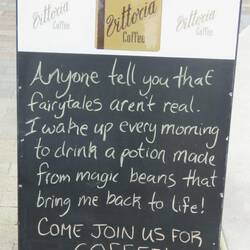 Vittoria
Coffee
Vittoria
Coffee
Vittoria
Coffee
Anyone tell you that
fairytales arent real.
I wake up every morning
to drink a potion made
from magic beans that
bring me back to life!
COME JOIN US FOR
COFFEE!